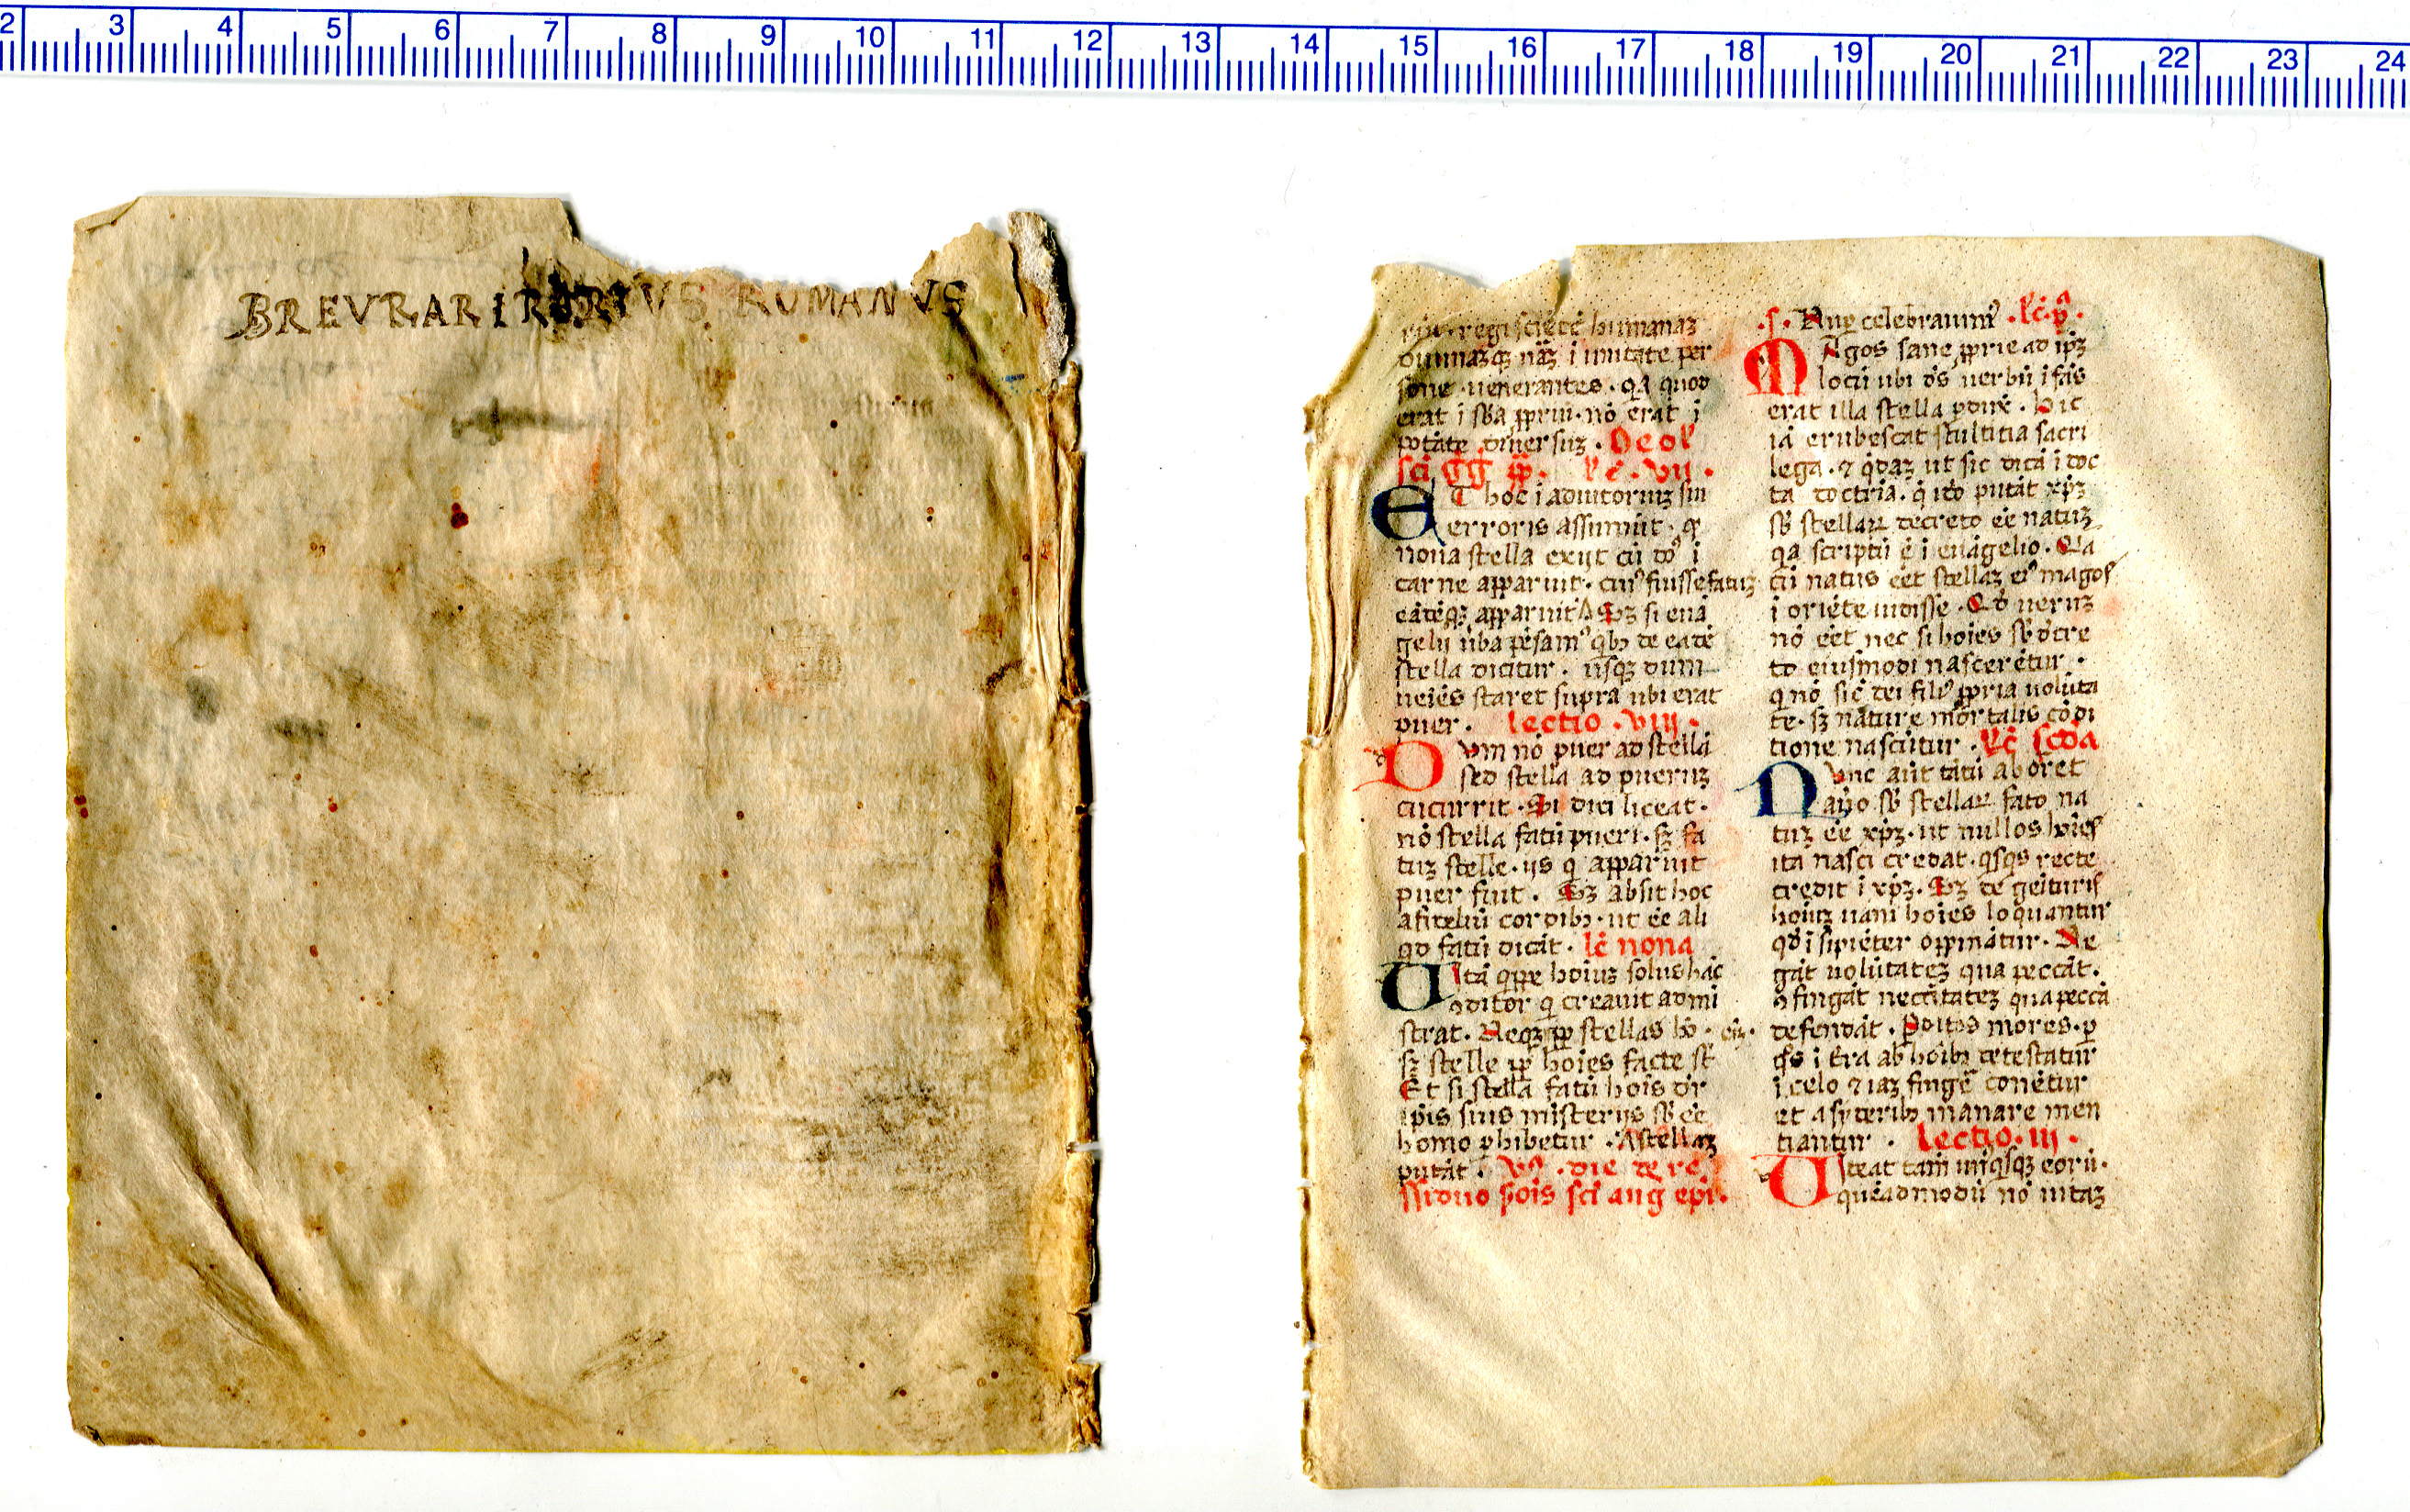 2 3 4 5 6 7 8 9 10 11 12 13 14 15 16 17 18 19 20 21 22 23 24
BREVRARIRORIVS ROMANVS
diuinaꝫqꝫ nāꝫ ī unitate per
sone uenerantes · qꝛ quod
erat ī sb̄a ꝓpriū · nō erat ī
ptāte diuersuꝫ · De ol̄
sc̄i GG pp̄ · lc̄ · vij ·
ET hoc ī adiutoriuꝫ sui
erroris assumūt · ꝙ
noua stella exijt cū dn̄s ī
carne apparuit · cuiꝰ fuisse fatuꝫ
eādēqꝫ apparuit Sꝫ si euā
gelij u̇ba pēsamꝰ qͥbꝫ de eadē
stella dicitur · usqꝫ dum
ueiēs staret supra ubi erat
puer · lectio · viij ·
Dum nō puer ad stellā
sed stella ad pueruꝫ
cucurrit · Si dici liceat ·
nō stella fatū pueri · sꝫ fa
tuꝫ stelle · ijs qͥ apparuit
puer fuit · Sꝫ absit hoc
afideliū cordibꝫ · ut ēe ali
qd fatū dicāt · lc̄ nona
Uitā qͥppe hoīuꝫ solus hāc
ꝯditor qͥ creauit admi
strat · Neqꝫ ꝓp̄ stellas hō · em̄ ·
sꝫ stelle ꝓp̄ hoīes facte st̄
Et si stella fatū hoīs dr̄
ip̄is suis misterijs sb̄ ēe
homo ꝓhibetur · Astellaꝫ
putāt · die de re
sc̄i aug epi ·
· s · Nuꝑ celebrauimꝰ · lc̄ · pͣ ·
Magos sane ꝓprie ad ip̄ꝫ
locū ubi dꝰs uerbū īfās
erat illa stella ꝑdux̄ · Hic
iā erubescat stultitia sacri
lega · ⁊ qͥdaꝫ ut sic dicā ī doc
ta doctrīa · qͥ iō putāt xp̄ꝫ
sb̄ stellaꝝ decreto ēe natuꝫ
qꝛ scriptū ē ī euāgelio · Qꝛ
cū natus eēt stellaꝫ eiꝰ magos
ī oriēte uidisse · Qd̄ ueruꝫ
nō eēt nec si hoīes sb̄ dcre
to eiusmodi nascerētur ·
qͥ nō sic̄ dei filiꝰ ꝓpria uolūta
te · sꝫ nature mortalis cōdi
tione nascūtur · lc̄ scd̄a
Nunc aūt tātū aboret
auo sb̄ stellaꝝ fato na
tuꝫ ēe xp̄ꝫ · ut nullos hoīes
ita nasci credat · qͥsqͥs recte
credit ī xp̄ꝫ · Sꝫ de geīturis
hoīuꝫ uani hoīes loquantur
qd̄ īsipiēter opinātur · Ne
gāt uolūtateꝫ qua peccāt ·
ꝯfingāt neccītateꝫ qua peccā
defendāt · Pditos mores · ꝑ
qͦs ī tr̄a ab hoībꝫ detestātur
ī celo ⁊ iaꝫ fingē conētur
et asyderibꝫ manare men
tiantur · lectio · iij ·
Uideat tam̄ unꝰqͥsqꝫ eorū ·
quēadmodū nō uitaꝫ